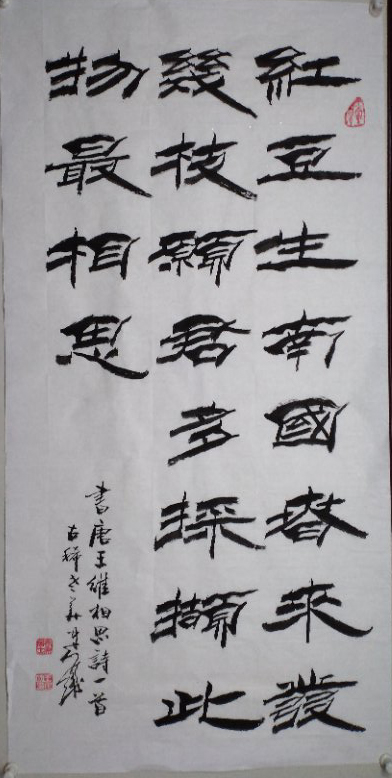 紅豆生南國春來發
幾枝願君多採擷此
物最相思
書唐王維相思詩一首
古稀老